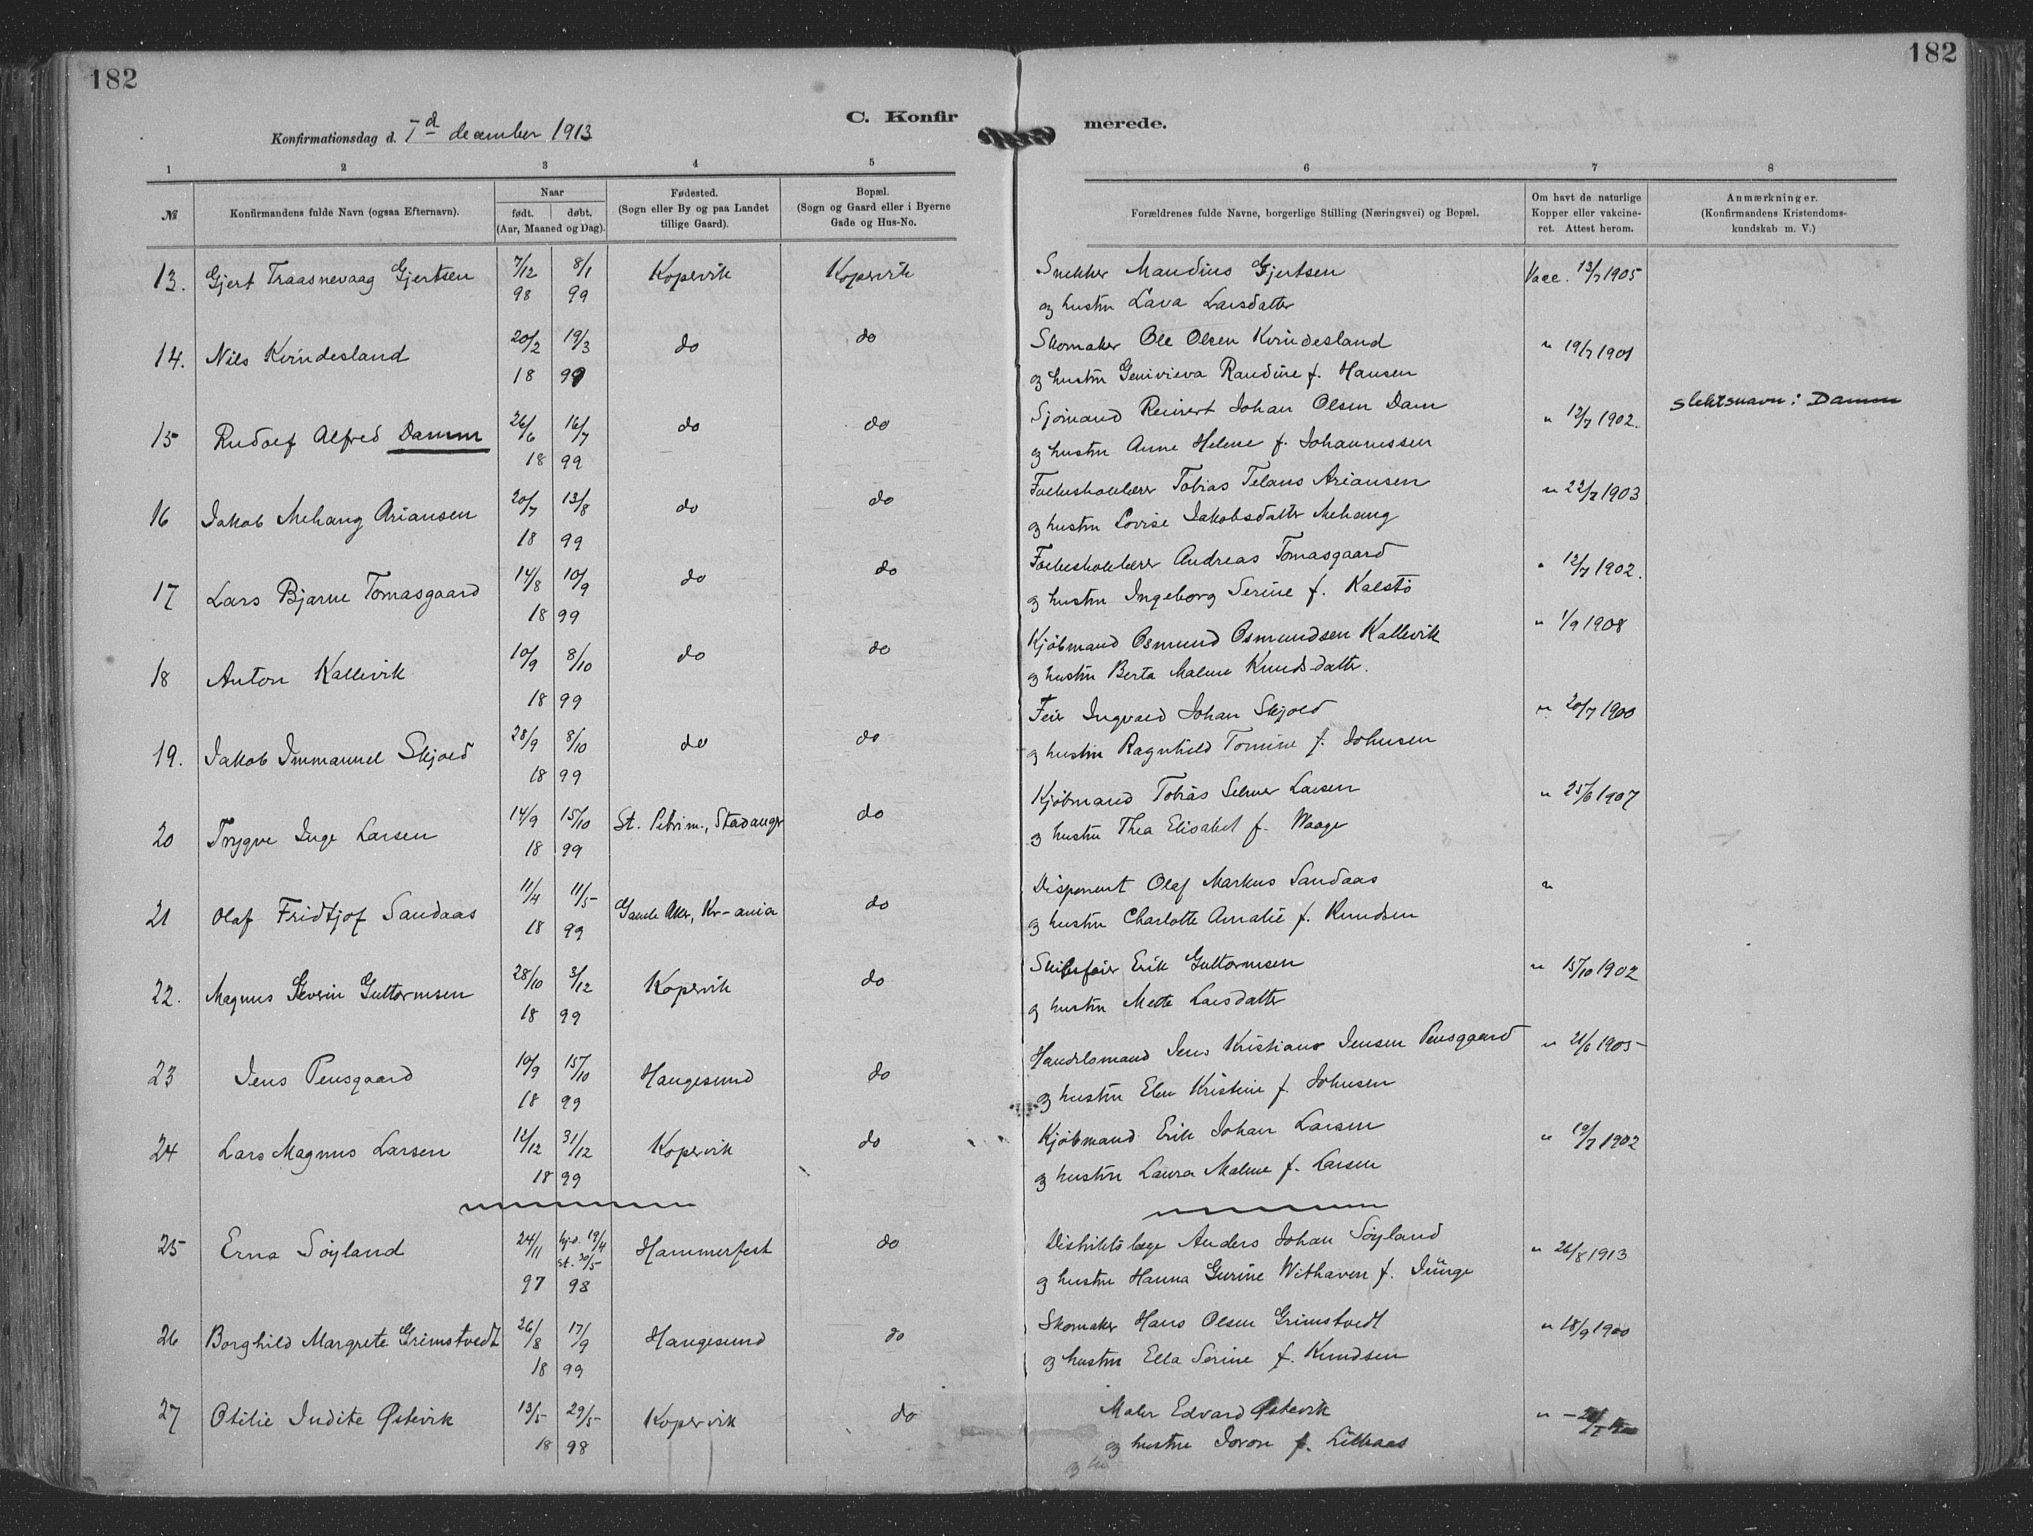 182
182
C. Konfir
merede.
Konfirmationsdag d. 7d december 1913
1 2 3 4 5
6 7 8
№
Konfirmandens fulde Navn (ogsaa Efternavn).
Naar
født. døbt.
(Aar, Maaned og Dag).
Fødested.
(Sogn eller By og paa Landet
tillige Gaard).
Bopæl.
(Sogn og Gaard eller i Byerne
Gade og Hus-No.
Forældrenes fulde Navne, borgerlige Stilling (Næringsvei) og Bopæl.
Om havt de naturlige
Kopper eller vakcine-
ret. Attest herom.
Anmærkninger.
(Konfirmandens Kristendoms-
kundskab m. V.)
13. Gjert Traasnevaag Gjertsen 7/12 8/1 Kopervik Kopervik Snekker Maudius Gjertsen Vacc. 13/7 1905
98 99 og hustru Lava Larsdatter
14. Nils Kvindesland 20/2 19/3 do do Skomaker Ole Olsen Kvindesland " 19/7 1901
18 99 og hustru Genivieva Randine f. Hansen
15 Rudolf Alfred Damm 26/6 16/7 do do Sjømand Reinert Johan Olsen Dam " 12/7 1902. slektsnavn: Damm
18 99 og hustru Anne Helene f. Johannessen
16 Jakob Mehang Ariansen 20/7 13/8 do do Folkeskolelærer Tobias Telans Ariansen " 22/7 1903
18 99 og hustru Lovise Jakobsdatter Mehang
17 Lars Bjarne Tomasgaard 14/8 10/9 do do Folkeskolelærer Andreas Tomasgaard " 12/7 1902.
18 99 og hustru Ingeborg Serine f. Kalstø
18 Anton Kallevik 10/9 8/10 do do Kjøbmand Osmund Osmundsen Kallevik " 1/9 1908
18 99 og hustru Berta Malene Knudsdatter.
19. Jakob Immanuel Skjold 28/9 8/10 do do Feier Ingvald Johan Skjold " 20/7 1900
18 99 og hustru Ragnhild Tomine f. Johnsen
20 Trygve Inge Larsen 14/9 15/10 St. Petrim., Stavanger do Kjøbmand Tobias Selmer Larsen " 25/6 1907
18 99 og hustru Thea Elisabet f. Waage
21 Olaf Fridtjof Sandaas 11/4 11/5 Gamle Aker, Kr-ania do Disponent Olaf Markus Sandaas "
18 99 og hustru Charlotte Amalie f. Knudsen
22. Magnus Severin Guttormsen 28/10 3/12 Kopervik do Skibsfører Erik Guttormsen " 15/10 1902
18 99 og hustru Mette Larsdatter
23 Jens Pensgaard 10/9 15/10 Haugesund do Handelsmand Jens Kristians Jensen Pensgaard " 21/6 1905
18 99 og hustru Elen Kristine f. Johnsen
24 Lars Magnus Larsen 12/12 31/12 Kopervik do Kjøbmand Erik Johan Larsen " 19/7 1902
18 99 og hustru Laura Malene f. Larsen
25 Erna Søyland 24/11 hj.d. 19/4 st. 30/5 Hammerfest do Distriktslæge Anders Johan Søyland " 26/8 1913
97 98 og hustru Hanna Gurine Withaven f. Jünge
26 Borghild Margrete Grimstvedt 26/8 17/9 Haugesund do Skomaker Hans Olsen Grimstvedt " 18/9 1900
18 99 og hustru Ella Serine f. Knudsen
27 Otilie Indite Østevik 13/5 29/5 Kopervik do Maler Edvard Østevik "
18 98 og hustru Joron f. Lillaas